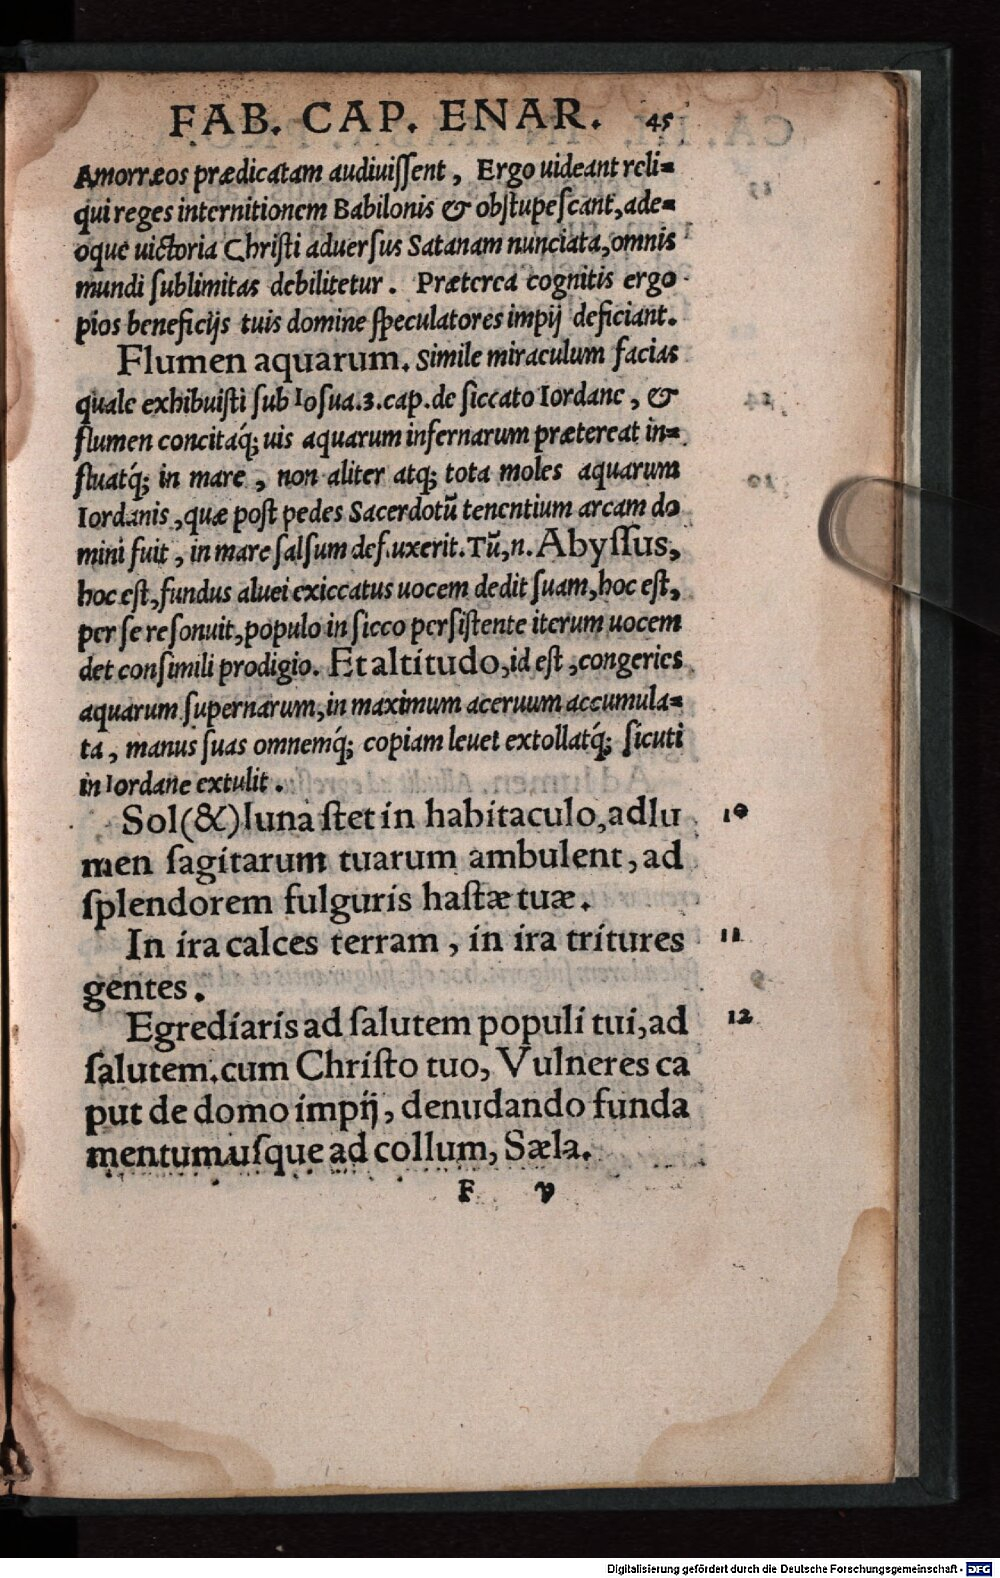 FAB. CAP. ENAR. 45
Amorræos prædicatam audiuiſſent, Ergo uideant reli=
qui reges internitionem Babilonis & obſtupeſcant, ade=
oque uictoria Chriſti aduerſus Satanam nunciata, omnis
mundi ſublimitas debilitetur. Præterea cognitis ergo
pios beneficijs tuis domine ſpeculatores impij deficiant.
Flumen aquarum. Simile miraculum facias
quale exhibuiſti ſub Ioſua.3.cap.de ſiccato Iordane, &
flumen concitaq́; uis aquarum infernarum prætereat in=
fluatq́; in mare, non aliter atq; tota moles aquarum
Iordanis, quæ poſt pedes Sacerdotũ tenentium arcam do
mini fuit, in mare ſalſum defluxerit. Tũ,n. Abyſſus,
hoc eſt, fundus aluei exiccatus uocem dedit ſuam, hoc eſt,
per ſe reſonuit, populo in ſicco perſiſtente iterum uocem
det conſimili prodigio. Et altitudo, id eſt, congeries
aquarum ſupernarum, in maximum aceruum accumula=
ta, manus ſuas omnemq́; copiam leuet extollatq́; ſicuti
in Iordane extulit.
Sol (&) luna ſtet in habitaculo, ad lu 10
men ſagitarum tuarum ambulent, ad
ſplendorem fulguris haſtæ tuæ.
In ira calces terram, in ira tritures 11
gentes.
Egrediaris ad ſalutem populi tui, ad 12
ſalutem. cum Chriſto tuo, Vulneres ca
put de domo impij, denudando funda
mentum uſque ad collum, Sæla.
F v
Digitalisierung gefördert durch die Deutsche Forschungsgemeinschaft - DFG